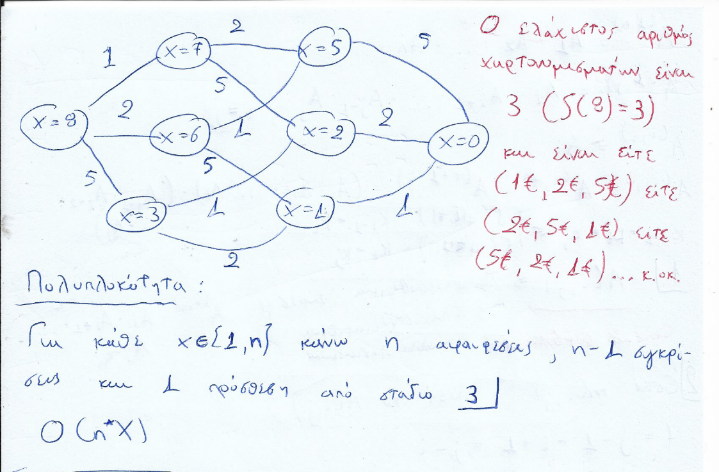 1
x=7
2
x=5
5
x=8
2
x=6
5
1
x=2
2
x=0
5
x=3
1
5
x=1
1
2
Ο ελάχιστος αριθμός
χαρτονομισμάτων είναι
3 (S(8)=3)
και είναι είτε
(1€, 2€, 5€) είτε
(2€, 5€, 1€) είτε
(5€, 2€, 1€)... κ.οκ.
Πολυπλοκότητα:
Για κάθε x∈[1,n] κάνω n αφαιρέσεις, n-1 συγκρί-
σεις και 1 πρόσθεση από στάδιο 3
O(n*X)